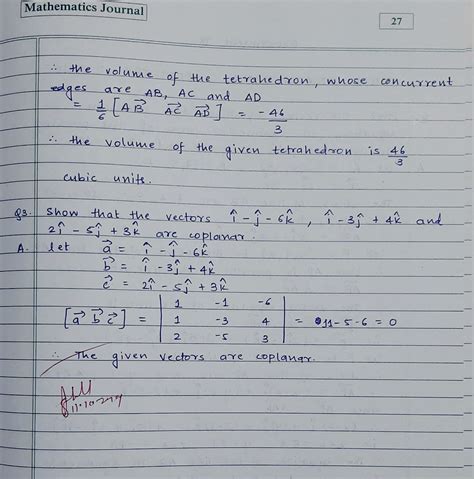 Mathematics Journal
27
∴ the volume of the tetrahedron, whose concurrent
edges are AB, AC and AD
= 1/6 [AB⃗ AC⃗ AD⃗] = -46/3
∴ the volume of the given tetrahedron is 46/3
cubic units.
Q3. Show that the vectors î - ĵ - 6k̂, î - 3ĵ + 4k̂ and
2î - 5ĵ + 3k̂ are coplanar.
A. let a⃗ = î - ĵ - 6k̂
b⃗ = î - 3ĵ + 4k̂
c⃗ = 2î - 5ĵ + 3k̂
[a⃗ b⃗ c⃗] = | 1 -1 -6 |
| 1 -3 4 | = 11-5-6 = 0
| 2 -5 3 |
∴ The given vectors are coplanar.